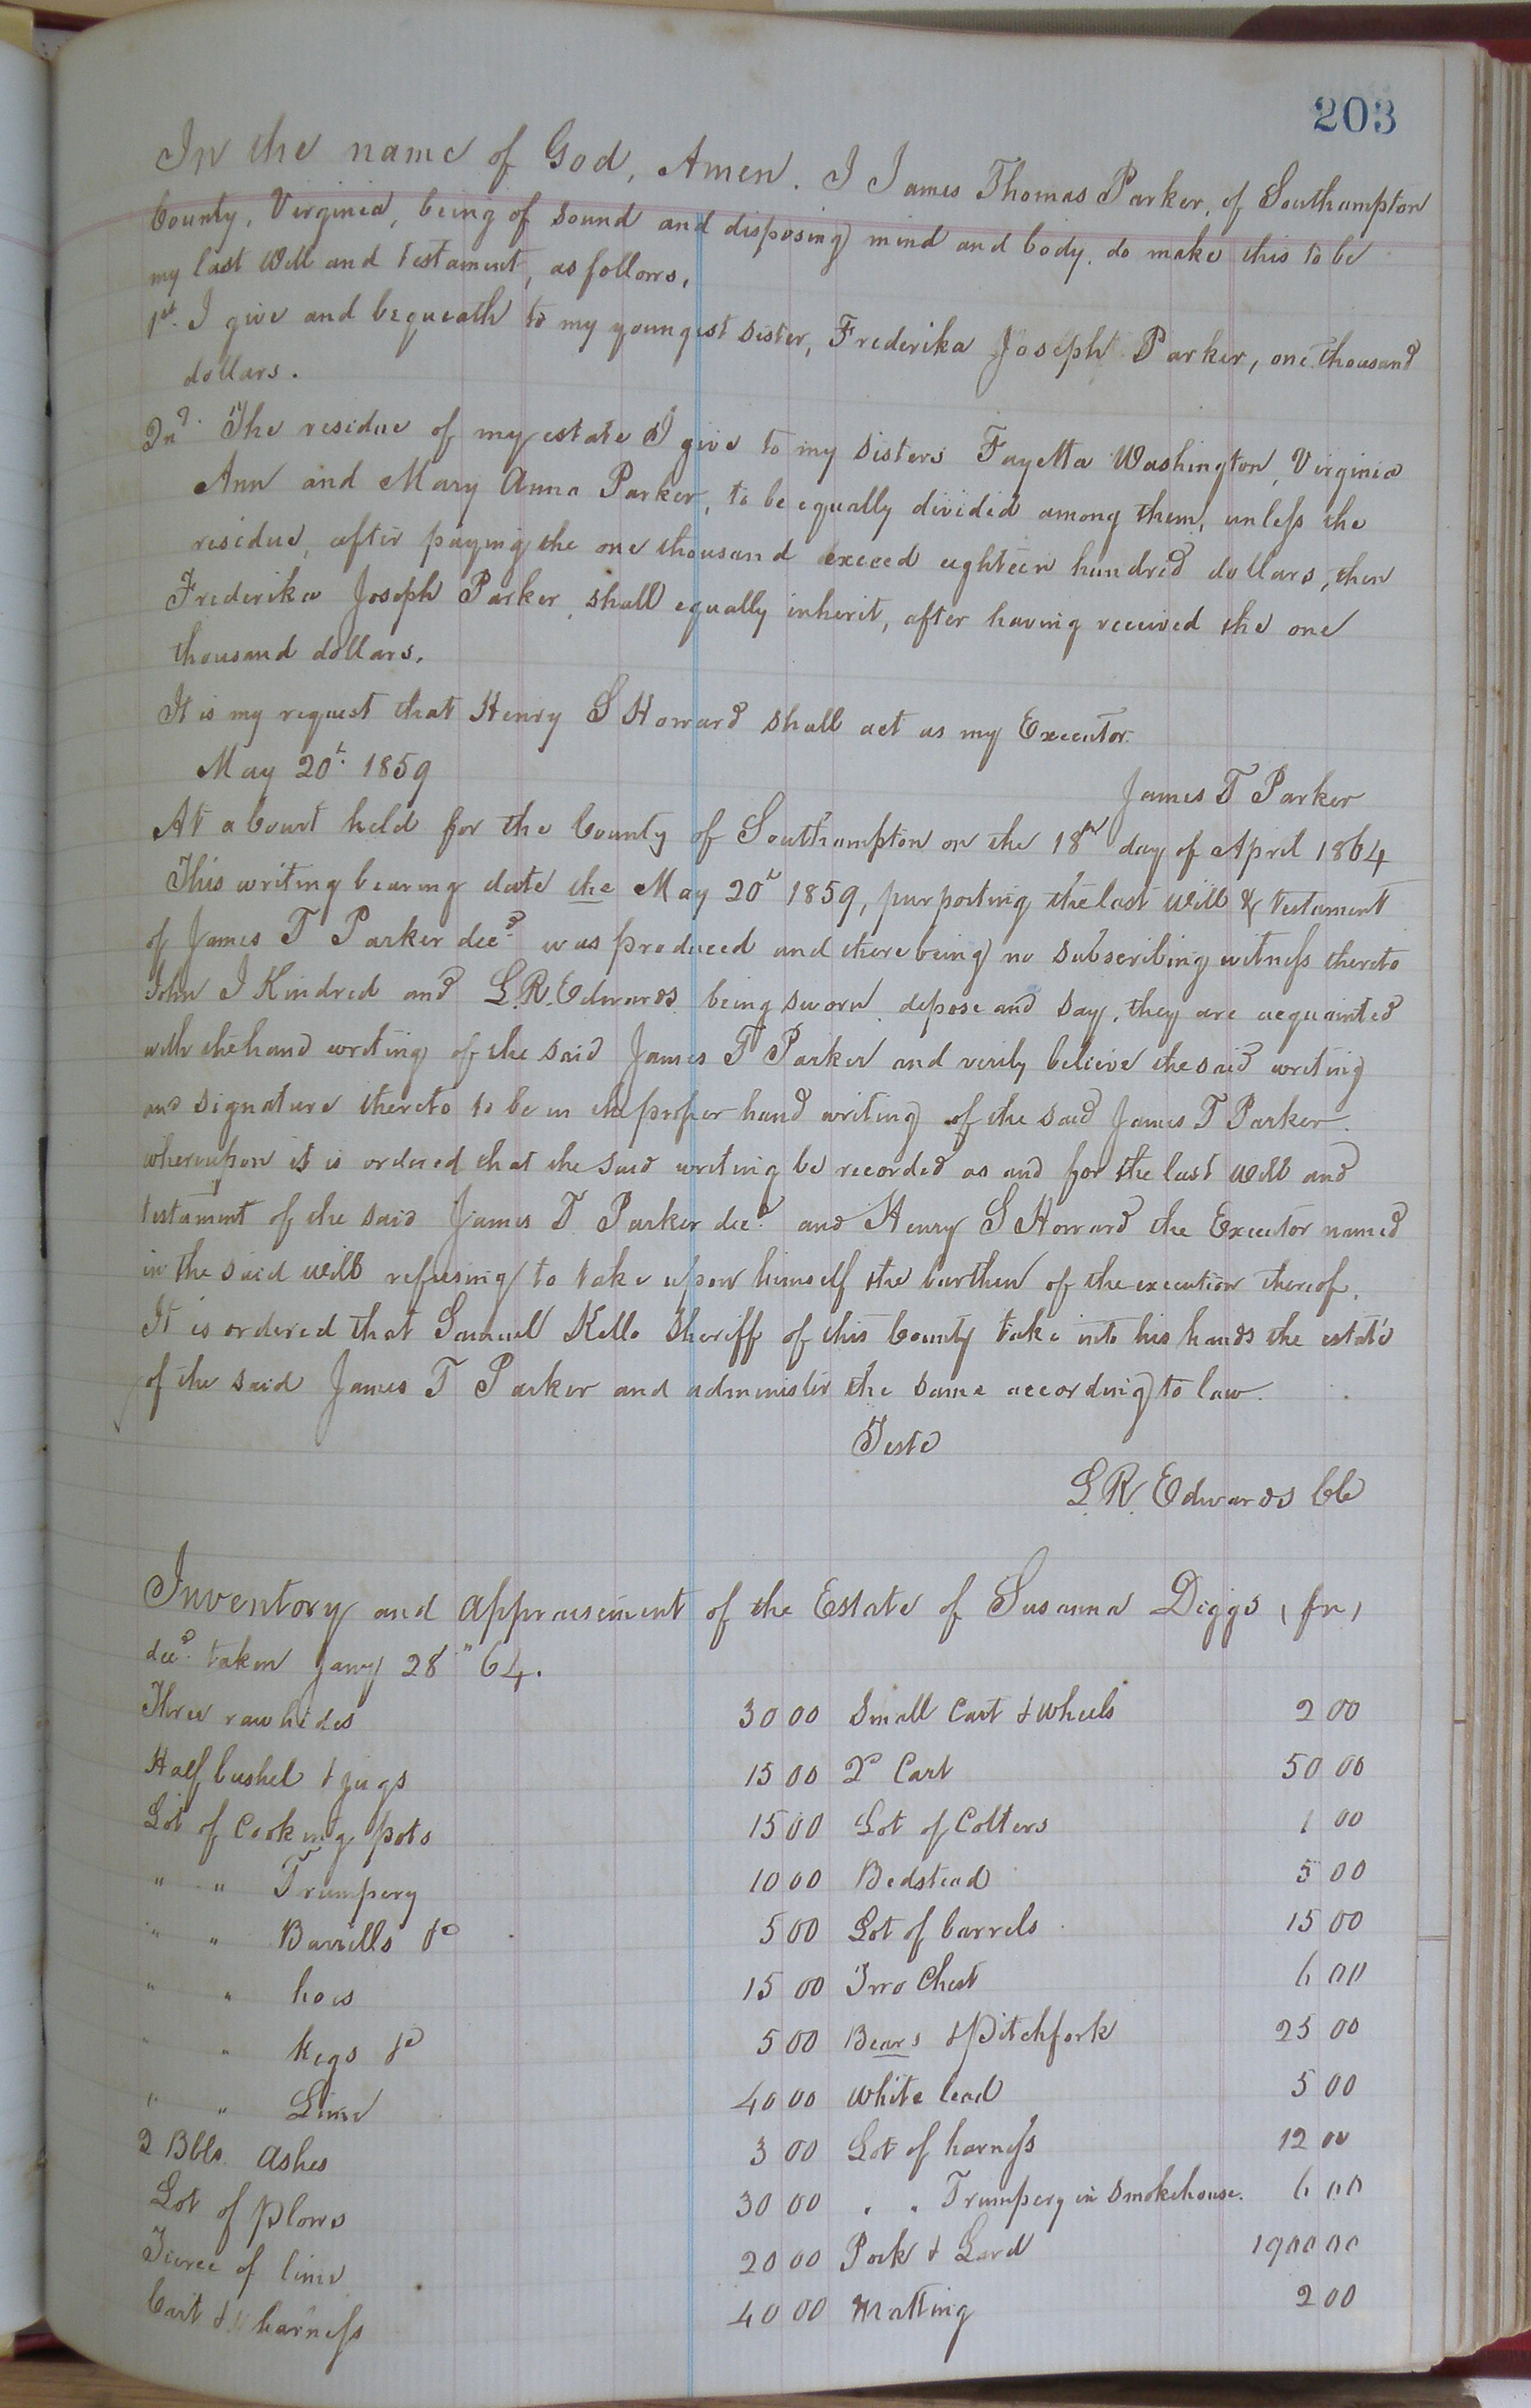 203
In the name of God, Amen. I James Thomas Parker, of Southampton
County, Virginia, being of sound and disposing mind and body, do make this to be
my last Will and testament, as follows,
1st. I give and bequeath to my youngest sister, Frederika Joseph Parker, one thousand
dollars.
2nd. The residue of my estate I give to my sisters Fayetta Washington, Virginia
Ann and Mary Anna Parker, to be equally divided among them, unless the
residue, after paying the one thousand exceed eighteen hundred dollars, then
Frederika Joseph Parker, shall equally inherit, after having received the one
thousand dollars.
It is my request that Henry S Howard shall act as my Executor.
May 20th 1859
James T Parker
At a Court held for the County of Southampton on the 18th day of April 1864
This writing bearing date the May 20th 1859, purporting the last Will & testament
of James T Parker decd. was produced and there being no subscribing witness thereto
John J Kindred and L.R. Edwards being sworn depose and say, they are acquainted
with the hand writing of the said James T Parker and verily believe the said writing
and signature thereto to be in the proper hand writing of the said James T Parker.
whereupon it is ordered that the said writing be recorded as and for the last Will and
testament of the said James T Parker decd. and Henry S Howard the Executor named
in the said Will refusing to take upon himself the burthen of the execution thereof.
It is ordered that Samuel Kello Sheriff of this County take into his hands the estate
of the said James T Parker and administer the same according to law.
Teste
L.R. Edwards Clk
Inventory and Appraisement of the Estate of Susanna Diggs,
decd. taken Jany 28" 64.
Three rawhides 30 00 Small Cart & Wheels 2 00
Half bushel & jugs 15 00 Do Cart 50 00
Lot of Cooking pots 15 00 Lot of Colters 1 00
" " Trumpery 10 00 Bedstead 5 00
" " Barrills &c 5 00 Lot of barrels 15 00
" " hoes 15 00 Chest 6 00
" " Kegs &c 5 00 Bears & Pitchfork 25 00
" " Lime 40 00 White lead 5 00
2 Bbls. Ashes 3 00 Lot of harness 12 00
Lot of Plows 30 00 " " Trumpery in Smokehouse. 6 00
Tierce of lime 20 00 Pork & Lard 1900 00
Cart & harness 40 00 Matting 2 00